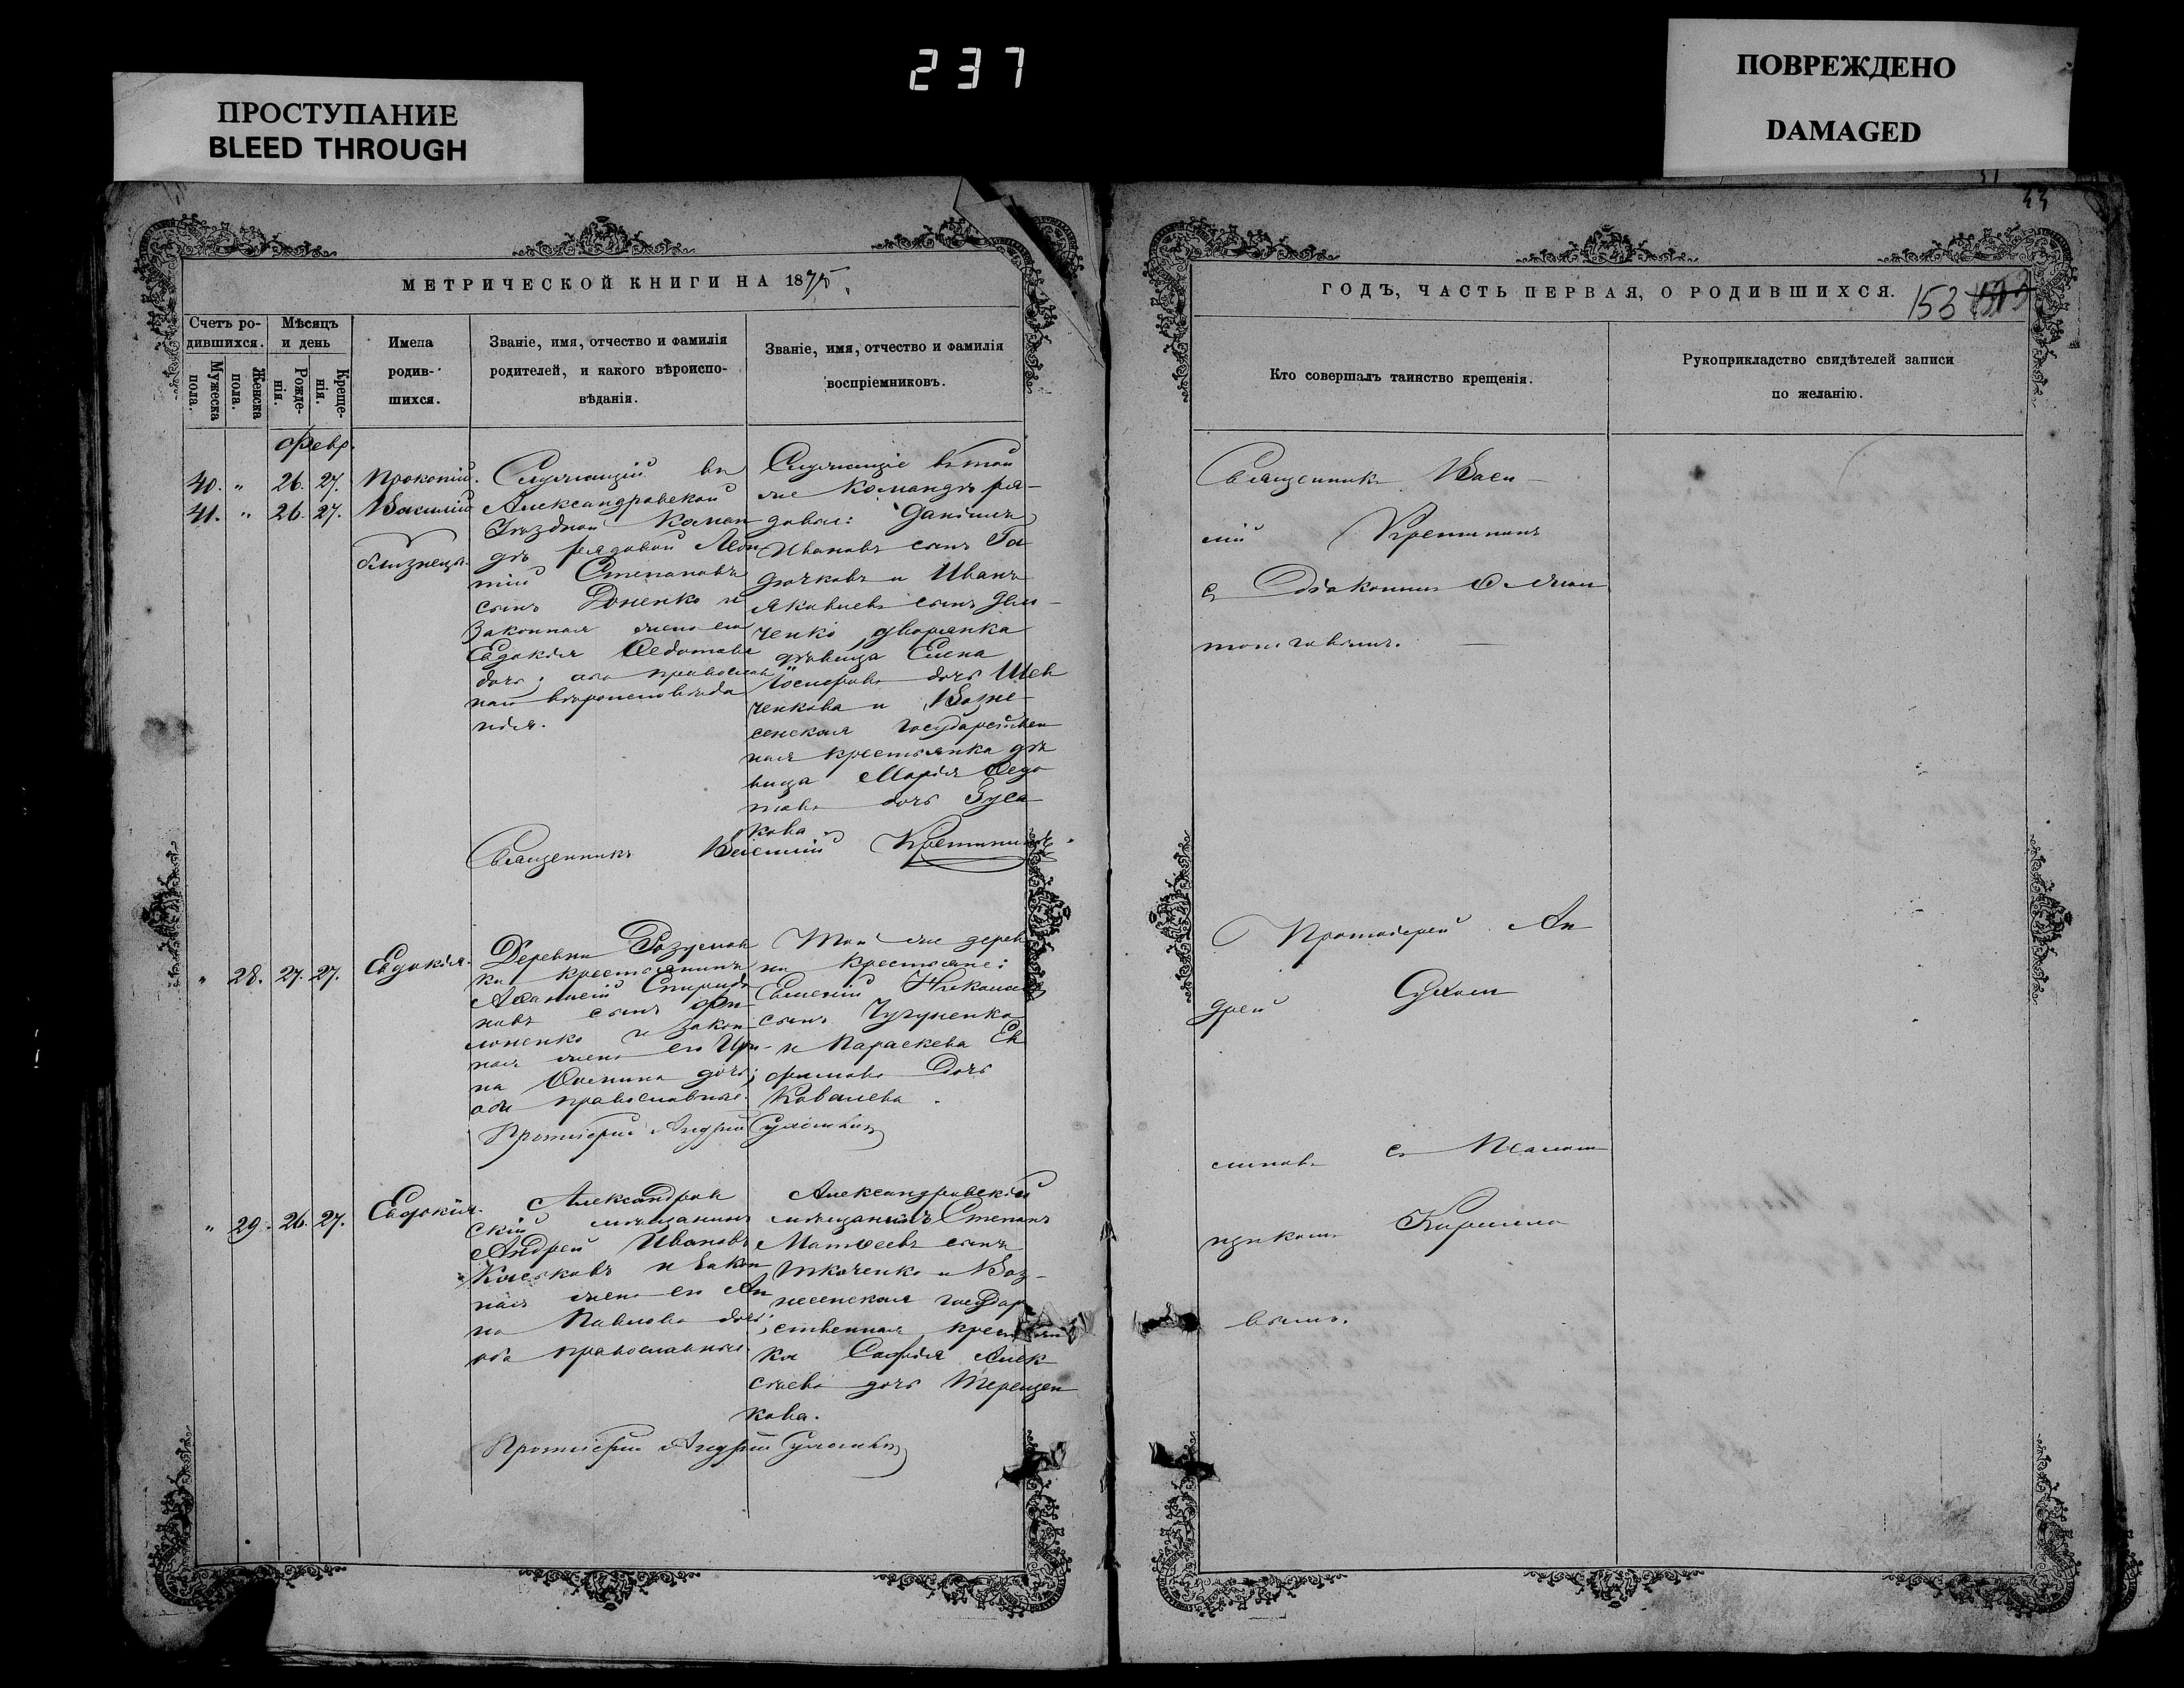 237
ПРОСТУПАНИЕ
BLEED THROUGH
ПОВРЕЖДЕНО
DAMAGED
МЕТРИЧЕСКОЙ КНИГИ НА 1875.
Счетъ родившихся.
Мужеска пола.
Женска пола.
Мѣсяцъ и день
Рожденія.
Крещенія.
Имена
родив-
шихся.
Званіе, имя, отчество и фамилія
родителей, и какого вѣроиспо-
вѣданія.
Званіе, имя, отчество и фамилія
воспріемниковъ.
Февр.
40. " 26. 27. Прокопій.
41. " 26. 27. Василий
близнецы.
Служащій въ
Александровской
Уѣздной коман
дѣ рядовой Леон
тій Степановъ
сынъ Доненко и
законная жена его
Евдокія Федотова
дочь; оба православ
наго вѣроисповѣда
нія.
Служащіе въ той
же командѣ ря-
довые: Даніилъ
Ивановъ сынъ
и Иванъ
Яковлевъ сынъ Дем-
ченко, дворянка
дѣвица Елена
Іосифова дочь Шев
ченкова и Возне-
сенская государствен
ная крестьянка дѣ
вица Марія Федо
това дочь Гуса
кова.
Священникъ Василий
" 28. 27. 27. Евдокія.
Деревни Разумов
ки крестьянинъ
Аѳанасій Спиридо
новъ сынъ Фи
лоненко и закон
ная жена его Ири-
на дочь;
оба православные.
Той же дерев
ни крестьяне:
Евменій
сынъ Чугуненко
и Параскева Ев
фимова дочь
Ковалева.
Протоіерей Андрей
" 29. 26. 27. Евдокія.
Александров
скій мѣщанинъ
Андрей Ивановъ
и закон
ная жена его Ан
на Павлова дочь;
оба православные.
Александровскій
мѣщанинъ Степанъ
Матѳеевъ сынъ
Ткаченко и Воз-
несенская государ
ственная крестьян
ка Софія Алек
сѣева дочь Терещен
кова.
Протоіерей Андрей
ГОДЪ, ЧАСТЬ ПЕРВАЯ, О РОДИВШИХСЯ.
153
Кто совершалъ таинство крещенія.
Рукоприкладство свидѣтелей записи
по желанію.
Священникъ Васи-
лій
съ Діакономъ
Протоіерей Ан
дрей
съ Псалом
щикомъ Кирилло
вымъ.